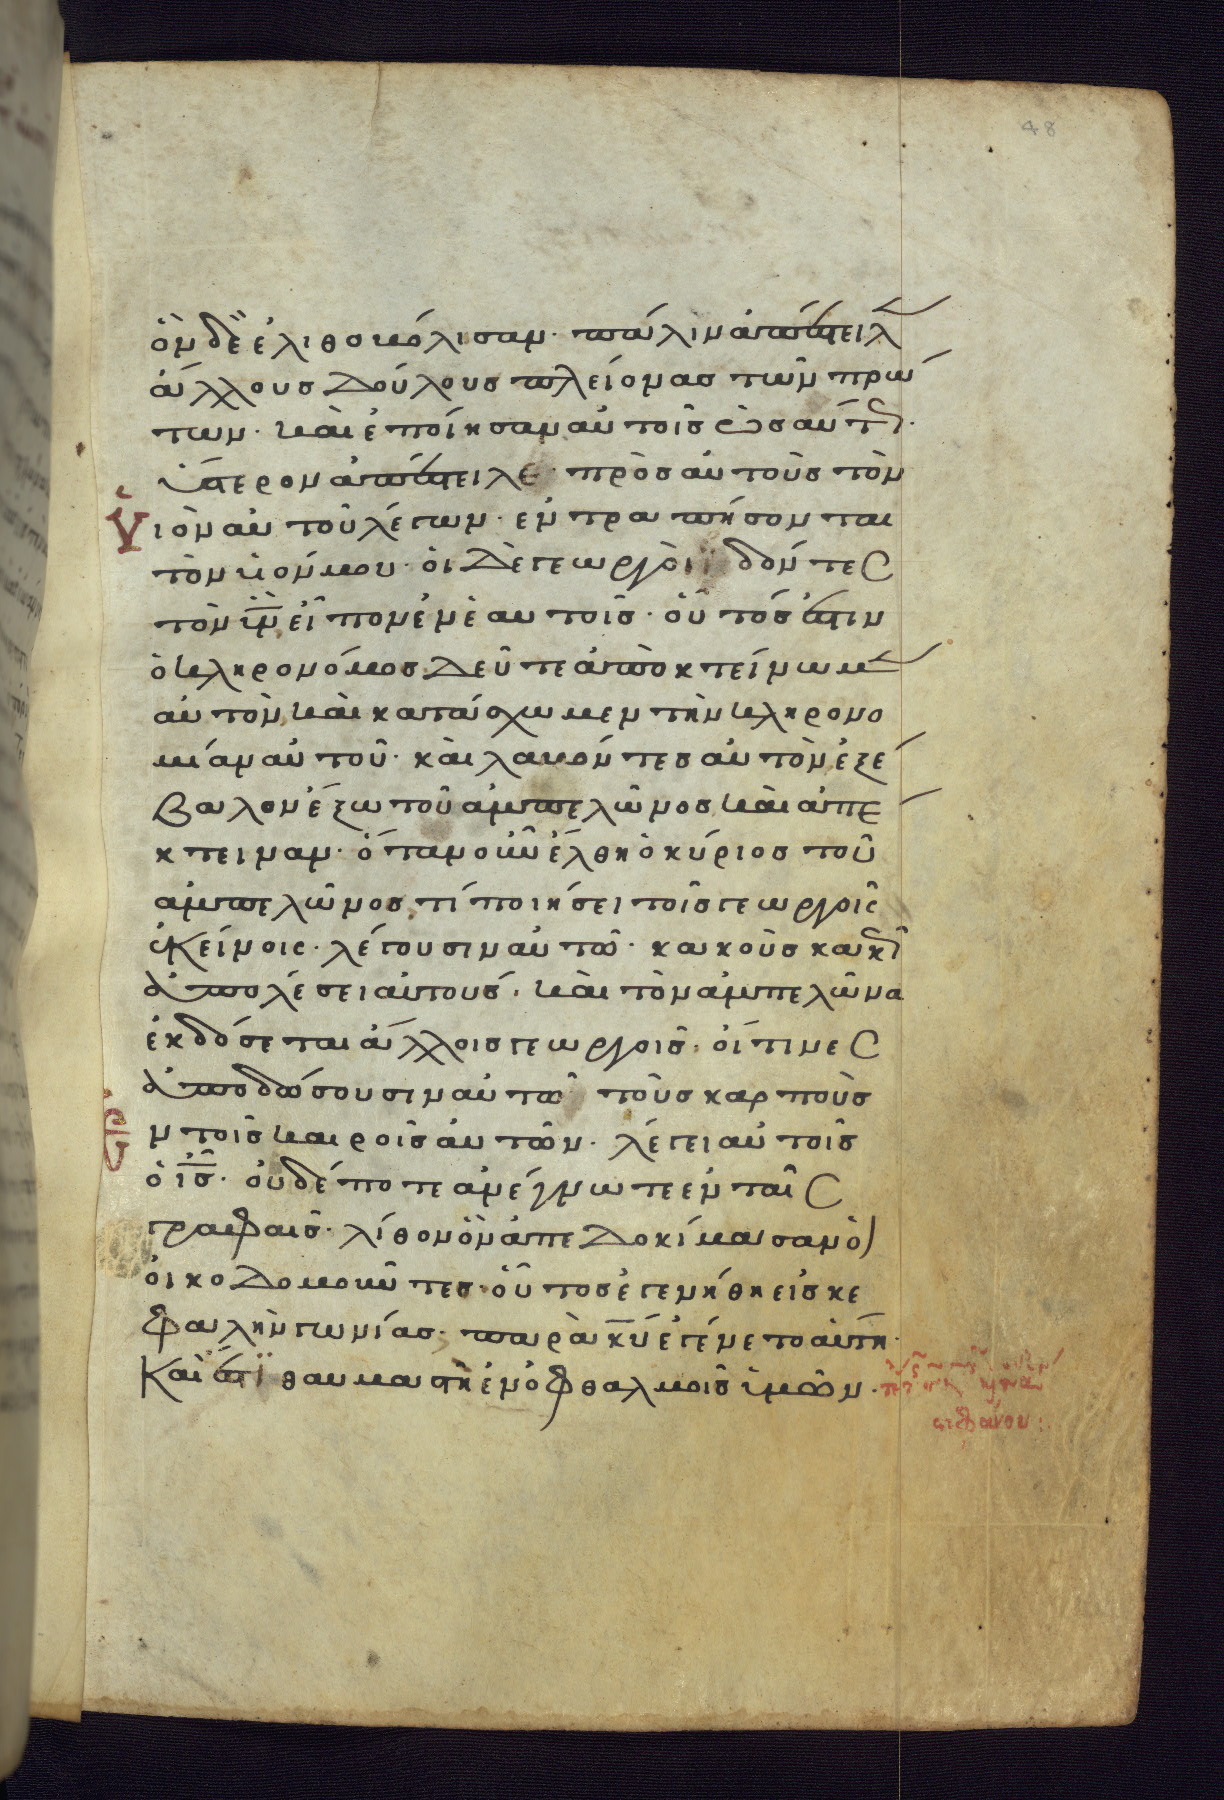 48
ὃν δὲ ἐλιθοβόλησαν· πάλιν ἀπέστειλ
ἄλλους δούλους πλείονας τῶν πρώ
των· καὶ ἐποίησαν αὐτοῖς ὡσαύτ
ὕστερον ἀπέστειλε πρὸς αὐτοὺς τὸν
ὑιὸν αὐτοῦ λέγων· ἐντραπήσονται
τὸν υἱόν μου· ὁι δὲ γεωργὸι ϊδόντες
τὸν ῡν εἶπον ἐν ἑαυτοῖς· οὗτός ἐστιν
ὁ κληρονόμος· δεῦτε ἀποκτείνωμ
αὐτὸν καὶ κατάσχωμεν τὴν κληρονο
μίαν αὐτοῦ· καὶ λαβόντες αὐτὸν ἐξέ
βαλον ἔξω τοῦ ἀμπελῶνος καὶ ἀπέ
κτειναν· ὅταν οὖν ἔλθη ὁ κύριος τοῦ
ἀμπελῶνος, τί ποιήσει τοῖς γεωργοῖς
ἐκείνοις· λέγουσιν αὐτῶ· κακοὺς κακ
ἀπολέσει αὐτούς· καὶ τὸν ἀμπελῶνα
ἐκδόσεται ἄλλοις γεωργοῖς· οἵτινες
ἀποδώσουσιν αὐτῶ τοὺς καρποὺς
ἐν τοῖς καιροῖς αὐτῶν· λέγει αὐτοῖς
ὁ ι̅ς̅· οὐδέποτε ἀνέγνωτε ἐν ταῖς
γραφαῖς· λίθον ὃν ἀπεδοκίμασαν ὁι
οἰκοδομοῦντες· οὗτος ἐγενήθη εἰς κε
φαλὴν γωνίας· παρὰ κ̅υ̅ ἐγένετο αὕτη·
Καὶ ἔστϊ θαυμαστὴ ἐν ὀφθαλμοῖς ἡμῶν·